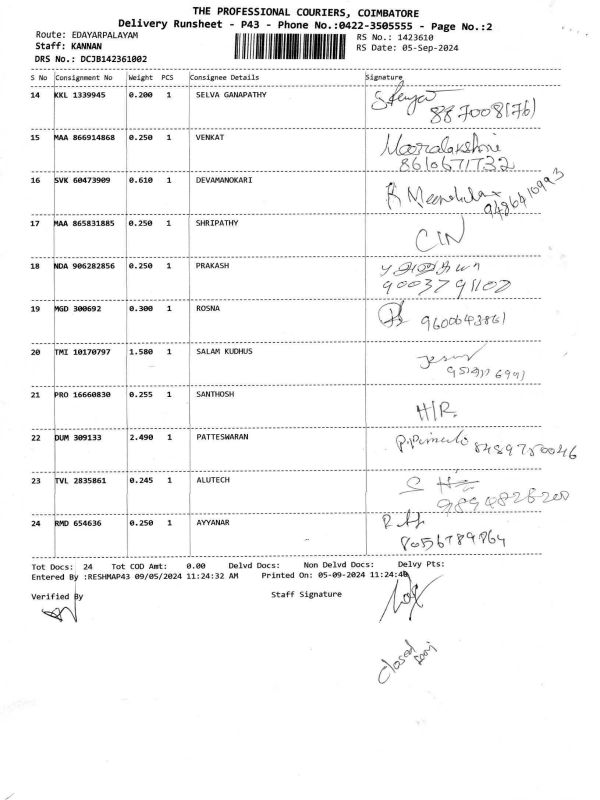 THE PROFESSIONAL COURIERS, COIMBATORE
Delivery Runsheet - P43 - Phone No.:0422-3505555 - Page No.:2
Route: EDAYARPALAYAM RS No.: 1423610
Staff: KANNAN RS Date: 05-Sep-2024
DRS No.: DCJB142361002
S No Consignment No Weight PCS Consignee Details Signature
14 KKL 1339945 0.200 1 SELVA GANAPATHY
15 MAA 866914868 0.250 1 VENKAT
8610671732
16 SVK 60473909 0.610 1 DEVAMANOKARI
9486410993
17 MAA 865831885 0.250 1 SHRIPATHY
18 NDA 906282856 0.250 1 PRAKASH
19 MGD 300692 0.300 1 ROSNA
9600643861
20 TMI 10170797 1.580 1 SALAM KUDHUS
21 PRO 16660830 0.255 1 SANTHOSH
H/R.
22 DUM 309133 2.490 1 PATTESWARAN
8489750046
23 TVL 2835861 0.245 1 ALUTECH
9894826200
24 RMD 654636 0.250 1 AYYANAR
8056789864
Tot Docs: 24 Tot COD Amt: 0.00 Delvd Docs: Non Delvd Docs: Delvy Pts:
Entered By :RESHMAP43 09/05/2024 11:24:32 AM Printed On: 05-09-2024 11:24:40
Verified By Staff Signature
Closed